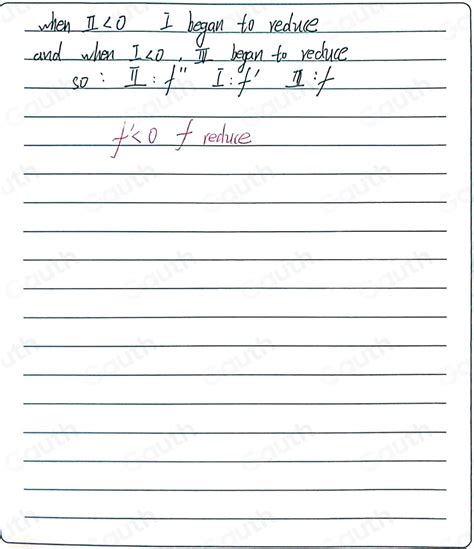 when II<0 I began to reduce
and when I<0, III began to reduce
so: II: f" I: f' III: f
f'<0 f reduce